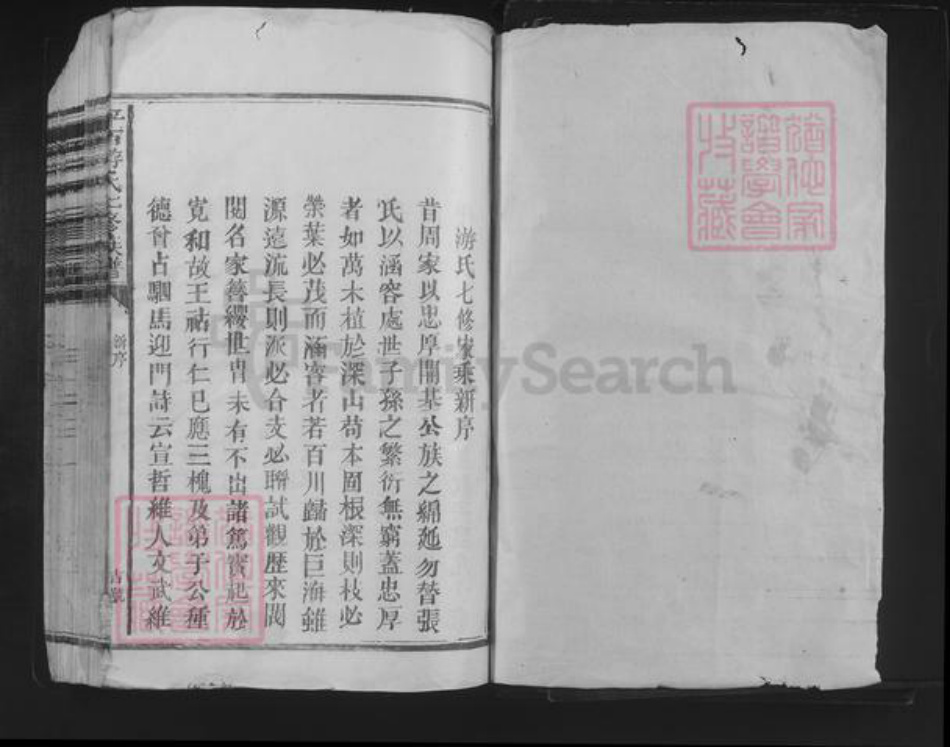 游氏七修家乘新序
昔周家以忠厚開基公族之綿延勿替張
氏以涵容處世子孫之繁衍無窮蓋忠厚
者如萬木植於深山苟本固根深則枝必
榮葉必茂而涵容者若百川歸於巨海雖
源遠流長則派必合支必聯試觀歷來閥
閱名家簪纓世胄未有不由諸篤實起於
寬和故王祐行仁已應三槐及弟于公種
德曾占駟馬迎門詩云宣哲維人文武維
游氏七修族譜
新序
FamilySearch